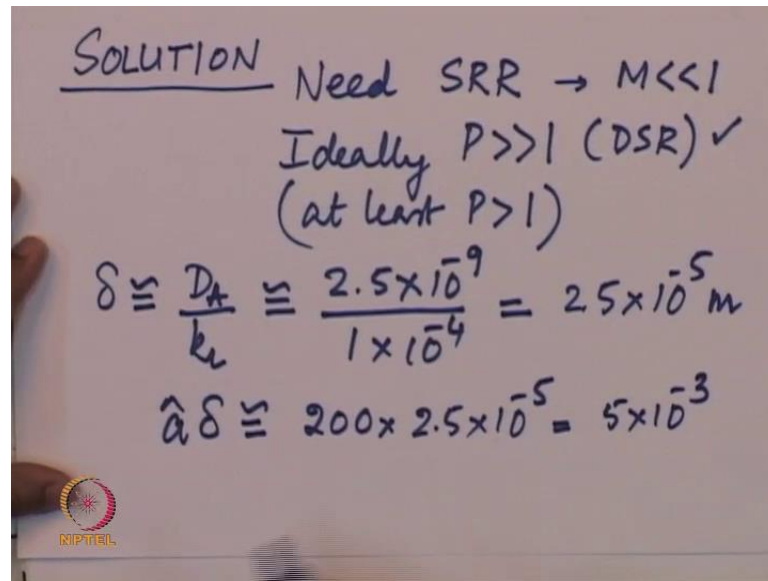 SOLUTION Need SRR → M<<1
Ideally P>>1 (DSR) ✓
(at least P>1)
δ ≅ D_A / k_L ≅ 2.5×10^-9 / 1×10^-4 = 2.5×10^-5 m
â δ ≅ 200 × 2.5×10^-5 = 5×10^-3
NPTEL